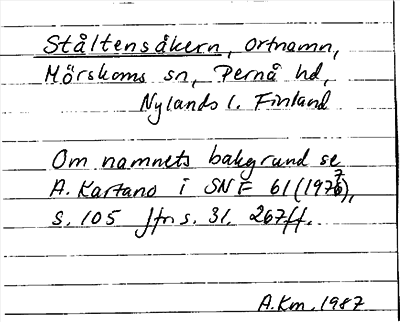 Ståltensåkern, ortnamn,
Mörskoms sn, Pernå hd,
Nylands l. Finland
Om namnets bakgrund se
A. Kartano i SNF 61 (1977),
s. 105 jfr s. 31, 267ff.
A.Km. 1987